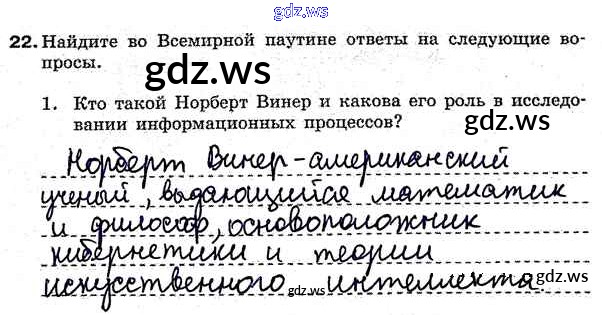 gdz.ws
22. Найдите во Всемирной паутине ответы на следующие во-
просы.
gdz.ws
gdz.ws
1. Кто такой Норберт Винер и какова его роль в исследо-
вании информационных процессов?
gdz.ws
Норберт Винер - американский
ученый, выдающийся математик
и философ, основоположник
кибернетики и теории
искусственного интеллекта.
gdz.ws
gdz.ws